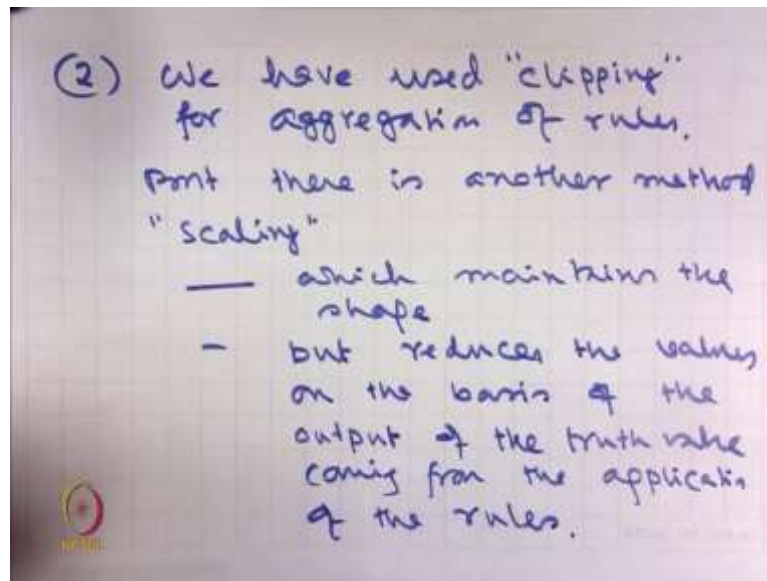 (2) We have used "clipping"
for aggregation of rules.
But there is another method
"scaling"
— which maintains the
shape
- but reduces the values
on the basis of the
output of the truth value
coming from the application
of the rules.
NPTEL